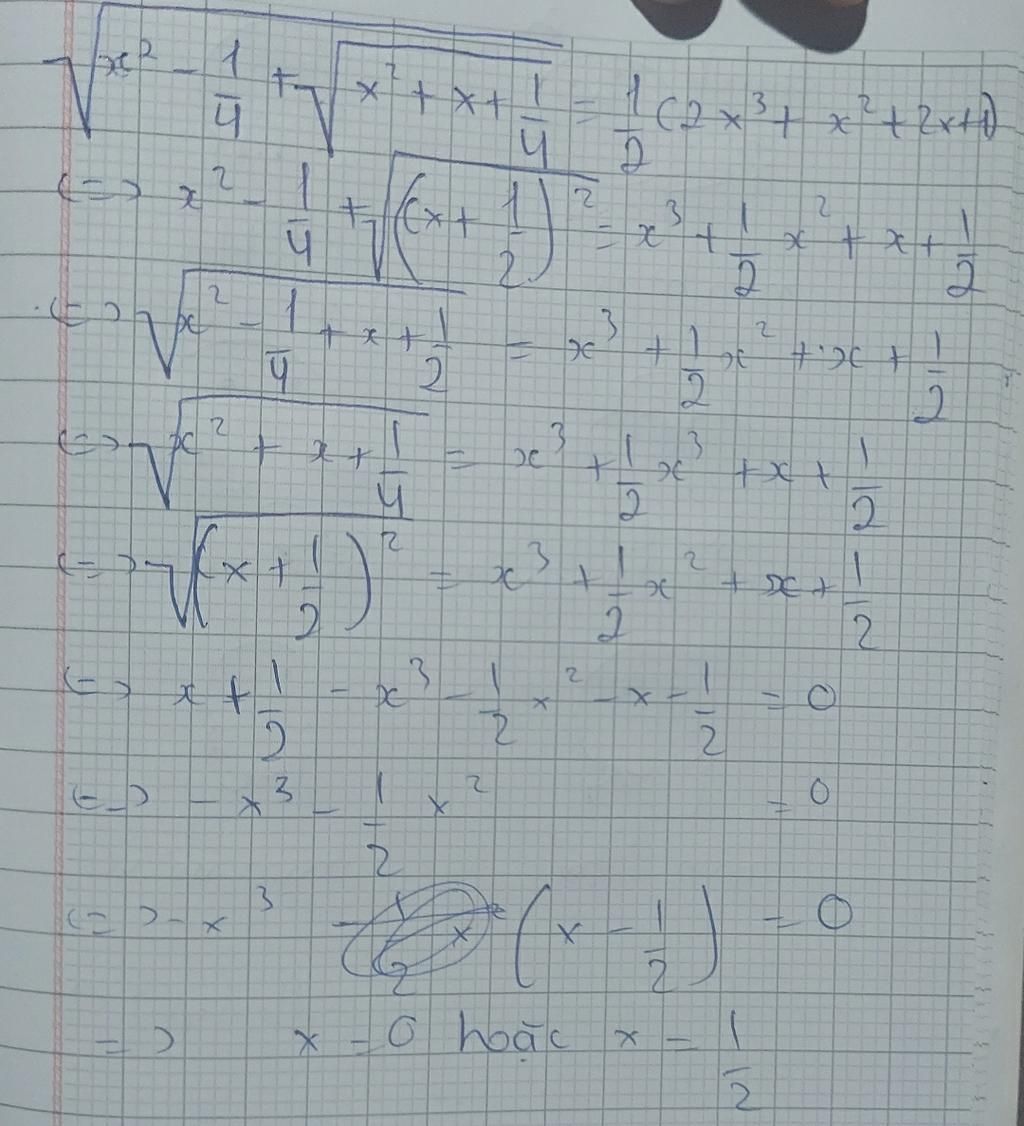 √(x² - 1/4 + √(x² + x + 1/4)) = 1/2 (2x³ + x² + 2x+1)
<=> x² - 1/4 + √((x + 1/2)²) = x³ + 1/2 x² + x + 1/2
<=> √(x² - 1/4 + x + 1/2) = x³ + 1/2 x² + x + 1/2
<=> √(x² + x + 1/4) = x³ + 1/2 x³ + x + 1/2
<=> √((x + 1/2)²) = x³ + 1/2 x² + x + 1/2
<=> x + 1/2 - x³ - 1/2 x² - x - 1/2 = 0
<=> - x³ - 1/2 x² = 0
<=> - x³ (x - 1/2) = 0
=> x = 0 hoặc x = 1/2